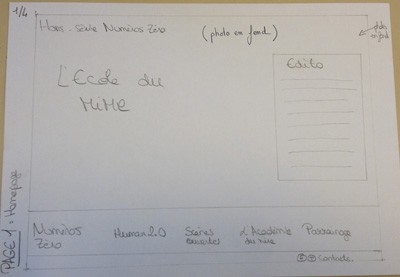 1/4
Hors-série Numéros Zéro
(photo en fond)
photo en fond
L'Ecole du
MIME
Edito
Numéros
Zéro
Human 2.0
Scènes
L'Académie
du mime
Passeurage
Contacts
PAGE 1 : Homepage